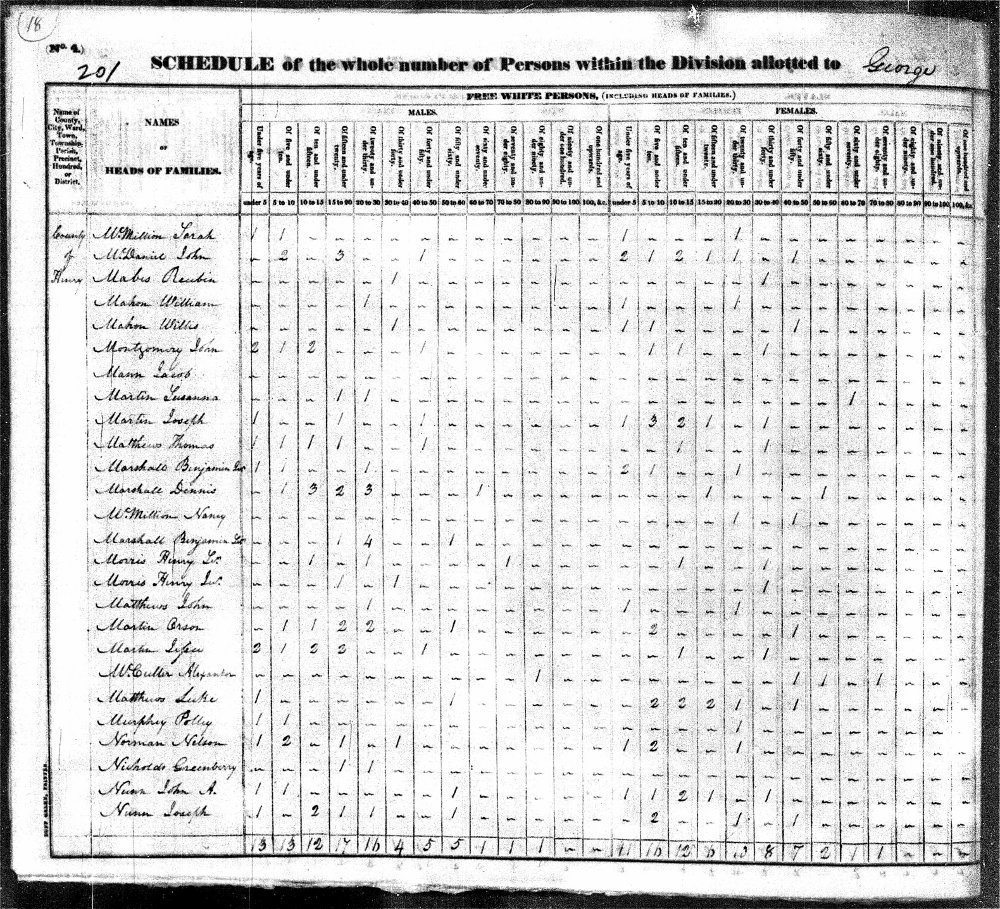 18
(No. 4.)
201
SCHEDULE of the whole number of Persons within the Division allotted to George
FREE WHITE PERSONS, (INCLUDING HEADS OF FAMILIES.)
MALES. FEMALES.
Name of County, City, Ward, Town, Township, Parish, Precinct, Hundred, or District.
NAMES
OF
HEADS OF FAMILIES.
under 5 5 to 10 10 to 15 15 to 20 20 to 30 30 to 40 40 to 50 50 to 60 60 to 70 70 to 80 80 to 90 90 to 100 100, &c. under 5 5 to 10 10 to 15 15 to 20 20 to 30 30 to 40 40 to 50 50 to 60 60 to 70 70 to 80 80 to 90 90 to 100 100, &c.
County McMillion Sarah 1 1 1 1
of McDaniel John 2 3 1 2 1 2 1 1 1
Henry Mabes Reubin 1 1
Mahon William 1 1 1
Mahon Willis 1 1 1 1
Montgomery John 2 1 2 1 1 1 1
Mann Jacob
Martin Susanna 1 1 1
Martin Joseph 1 1 1 1 3 2 1 1
Matthews Thomas 1 1 1 1 1 1 1
Marshall Benjamin 1 1 1 2 1 1
Marshall Dennis 1 3 2 3 1 1 1
McMillion Nancy 1 1
Marshall Benjamin 1 4 1
Morris Henry Sr. 1 1 1 1 1
Morris Henry Jr. 1 1 1
Matthews John 1 1 1
Martin Orson 1 1 2 2 1 2 1
Martin 2 1 2 2 1 1 1
McCutler Alexander 1 1 1 1
Matthews Luke 1 1 2 2 2 1 1
Murphey Polley 1 1 1
Norman Nelson 1 2 1 1 1 2 1
Nicholds Greenberry 1 1
Nunn John A. 1 1 1 1 1 2 1 1
Nunn Joseph 1 2 1 1 1 2 1 1
13 13 12 17 16 4 5 5 1 1 1 11 16 12 6 8 7 2 1 1